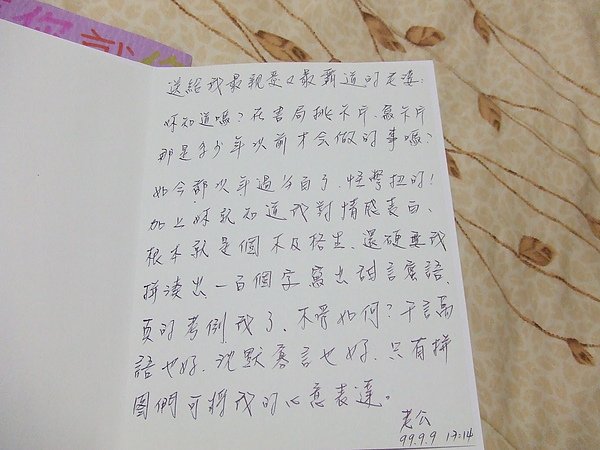 你就
送給我最親愛又最霸道的老婆:
妳知道嗎?在書局挑卡片、寫卡片
那是多少年以前才会做的事嗎?
如今都次年過半百了、怪彆扭的!
加上妳就知道我對情感表白、
根本就是個不及格生、還硬要我
拼湊出一百個字寫出甜言蜜語、
真的考倒我了、不管如何?千言萬
語也好、沈默寡言也好、只有拼
圖們可將我的心意表達。
老公
99.9.9 13:14